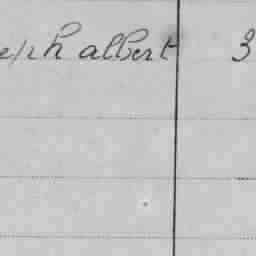 eph albert 3